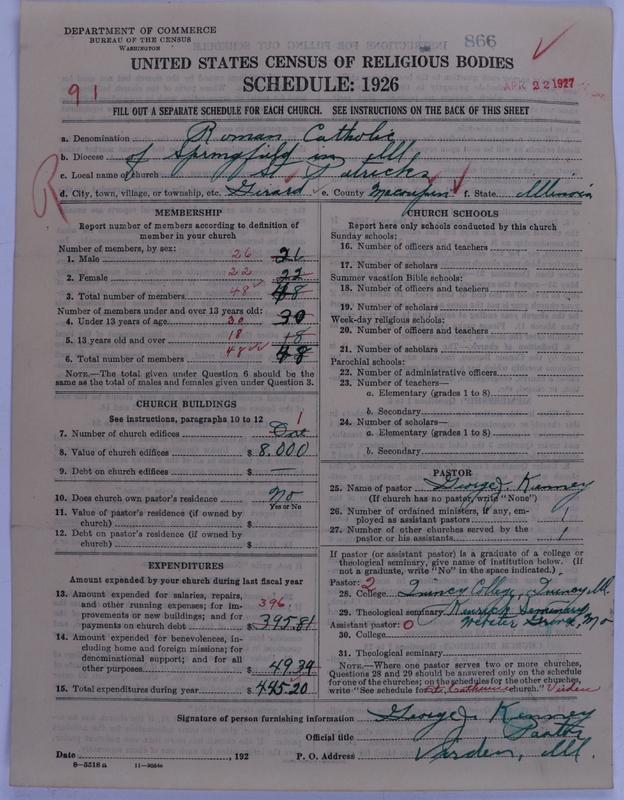 DEPARTMENT OF COMMERCE
BUREAU OF THE CENSUS
WASHINGTON
866
UNITED STATES CENSUS OF RELIGIOUS BODIES
SCHEDULE: 1926
91
APR 22 1927
FILL OUT A SEPARATE SCHEDULE FOR EACH CHURCH. SEE INSTRUCTIONS ON THE BACK OF THIS SHEET
a. Denomination Roman Catholic
b. Diocese of Springfield in Ill.
c. Local name of church St. Patricks
d. City, town, village, or township, etc. Girard e. County Macoupin f. State Illinois
MEMBERSHIP
Report number of members according to definition of
member in your church
Number of members, by sex:
1. Male 26
2. Female 22 22
3. Total number of members 48 48
Number of members under and over 13 years old:
4. Under 13 years of age 30 30
5. 13 years old and over 18 18
6. Total number of members 48 48
NOTE.—The total given under Question 6 should be
the same as the total of males and females given under Question 3.
CHURCH BUILDINGS
See instructions, paragraphs 10 to 12 1
7. Number of church edifices One
8. Value of church edifices $ 8.000
9. Debt on church edifices $ —
10. Does church own pastor's residence No
Yes or No
11. Value of pastor's residence (if owned by
church) $
12. Debt on pastor's residence (if owned by
church) $
EXPENDITURES
Amount expended by your church during last fiscal year
13. Amount expended for salaries, repairs,
and other running expenses; for im- 396
provements or new buildings; and for
payments on church debt $ 395.81
14. Amount expended for benevolences, in-
cluding home and foreign missions; for
denominational support; and for all
other purposes $ 49.39
15. Total expenditures during year $ 445.20
CHURCH SCHOOLS
Report here only schools conducted by this church
Sunday schools:
16. Number of officers and teachers
17. Number of scholars
Summer vacation Bible schools:
18. Number of officers and teachers
19. Number of scholars
Week-day religious schools:
20. Number of officers and teachers
21. Number of scholars
Parochial schools:
22. Number of administrative officers
23. Number of teachers—
a. Elementary (grades 1 to 8)
b. Secondary
24. Number of scholars—
a. Elementary (grades 1 to 8)
b. Secondary
PASTOR
25. Name of pastor George J. Kenney
(If church has no pastor, write "None")
26. Number of ordained ministers, if any, em-
ployed as assistant pastors 1
27. Number of other churches served by the
pastor or his assistants 1
If pastor (or assistant pastor) is a graduate of a college or
theological seminary, give name of institution below. (If
not a graduate, write "No" in the space indicated.)
Pastor: 2
28. College Quincy College, Quincy Ill.
29. Theological seminary Kenrick Seminary
Assistant pastor: 0 Webster Groves, Mo
30. College
31. Theological seminary
NOTE.—Where one pastor serves two or more churches,
Questions 28 and 29 should be answered only on the schedule
for one of the churches; on the schedules for the other churches,
write "See schedule for church." Virden
Signature of person furnishing information George J. Kenney
Official title Pastor
Date , 192 P. O. Address Virden, Ill.
8-5518a 11-9564e